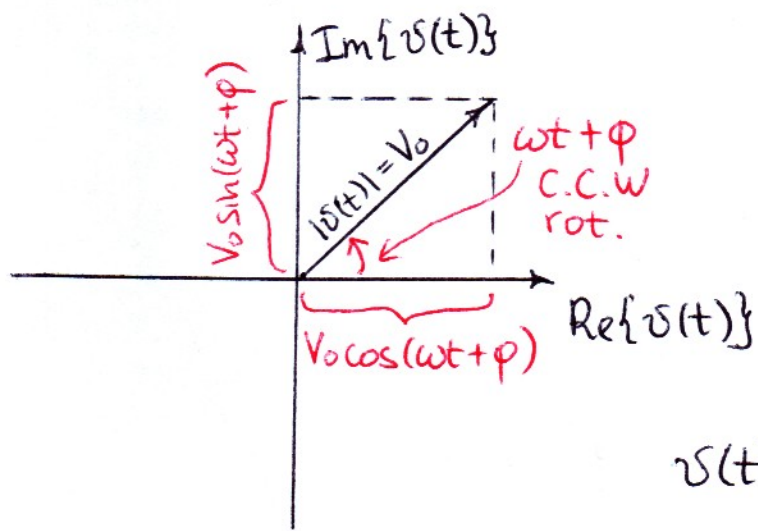 Im{v(t)}
V₀ sin(ωt+φ)
|v(t)| = V₀
ωt+φ
C.C.W
rot.
Re{v(t)}
V₀ cos(ωt+φ)
v(t